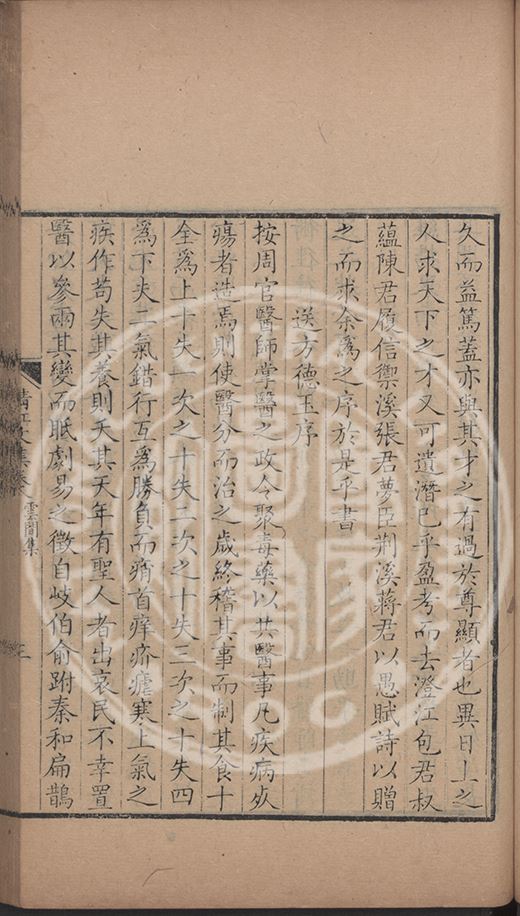 久而益篤蓋亦與其才之有過於尊顯者也異日上之
人求天下之才又可遺潛巳乎盈考而去澄江包君叔
蘊陳君履信禦溪張君夢臣荆溪蔣君以愚賦詩以贈
之而求余爲之序於是乎書
送方德玉序
按周官醫師掌醫之政令聚毒藥以共醫事凡疾病疕
瘍者造焉則使醫分而治之歳終稽其事而制其食十
全爲上十失一次之十失二次之十失三次之十失四
爲下夫二氣錯行互爲勝負而痟首痒疥瘧寒上氣之
疾作苟失其養則夭其天年有聖人者出哀民不幸置
醫以參兩其變而眡劇易之徵自岐伯俞跗秦和扁鵲
清江文集卷
雲間集